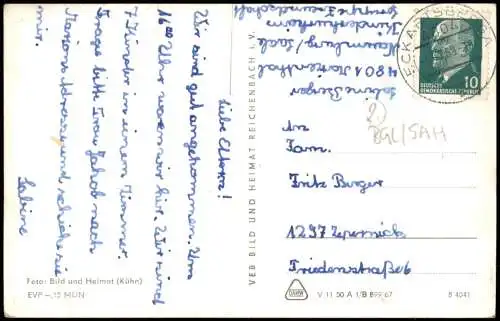 Liebe Eltern!
Wir sind gut angekommen. Um
16⁰⁰ Uhr waren wir hier. Wir sind
7 Kinder in einem Zimmer.
Frage bitte Frau Jakob nach
Marions Adresse und schicke sie
mir.
Sabine
Foto: Bild und Heimat (Kühn)
EVP –,15 MDN
VEB BILD UND HEIMAT REICHENBACH i. V.
V 11 50 A 1/B 899/67
B 4041
Sabine Berger
4801
Naumburg/Saale
Kinderkurheim
Gruppe Freundschaft
ECKARTSBERGA
10
DEUTSCHE
DEMOKRATISCHE REPUBLIK
BGL/SAH
An
Fam.
Fritz Berger
1297 Zepernick
Friedenstraße 6